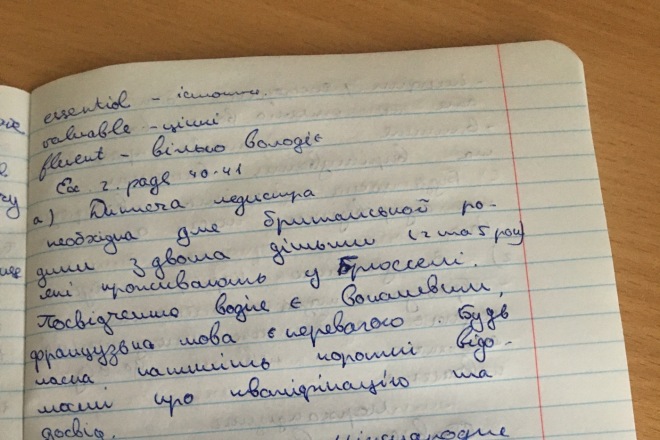 essential - істотні.
valuable - цінні
fluent - вільно володіє
Ex 2. page 40-41
а) Дитяча медсестра
необхідна для британської ро-
дини з двома дітьми (2 та 5 рои)
які проживають у Брюсселі.
Посвідчення водія є
французька мова є перевагою. Будь
ласка напишіть короткі відо-
мості про кваліфікацію та
досвід.
міжнародне